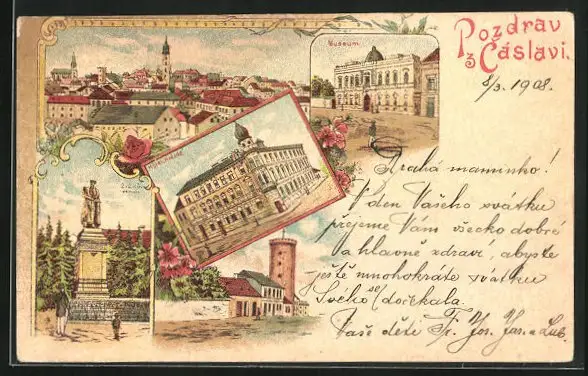 Pozdrav
z Čáslavi.
Museum
8/3. 1908.
Drahá maminko!
V den Vašeho svátku
přejeme Vám všecko dobré
a hlavně zdraví, abyste
ještě mnohokráte svátku
Svého se dočekala.
Vaše děti Fr. Jos. Jar. a Lud.